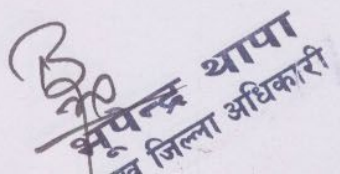 भूपेन्द्र थापा
जिल्ला अधिकारी